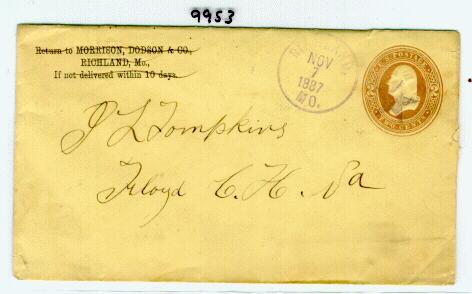 9953
Return to MORRISON, DODSON & CO.,
RICHLAND, Mo.,
If not delivered within 10 days.
RICHLAND,
NOV
7
1887
MO.
U.S. POSTAGE
TWO CENTS
J L Tompkins
Floyd C. H. Va